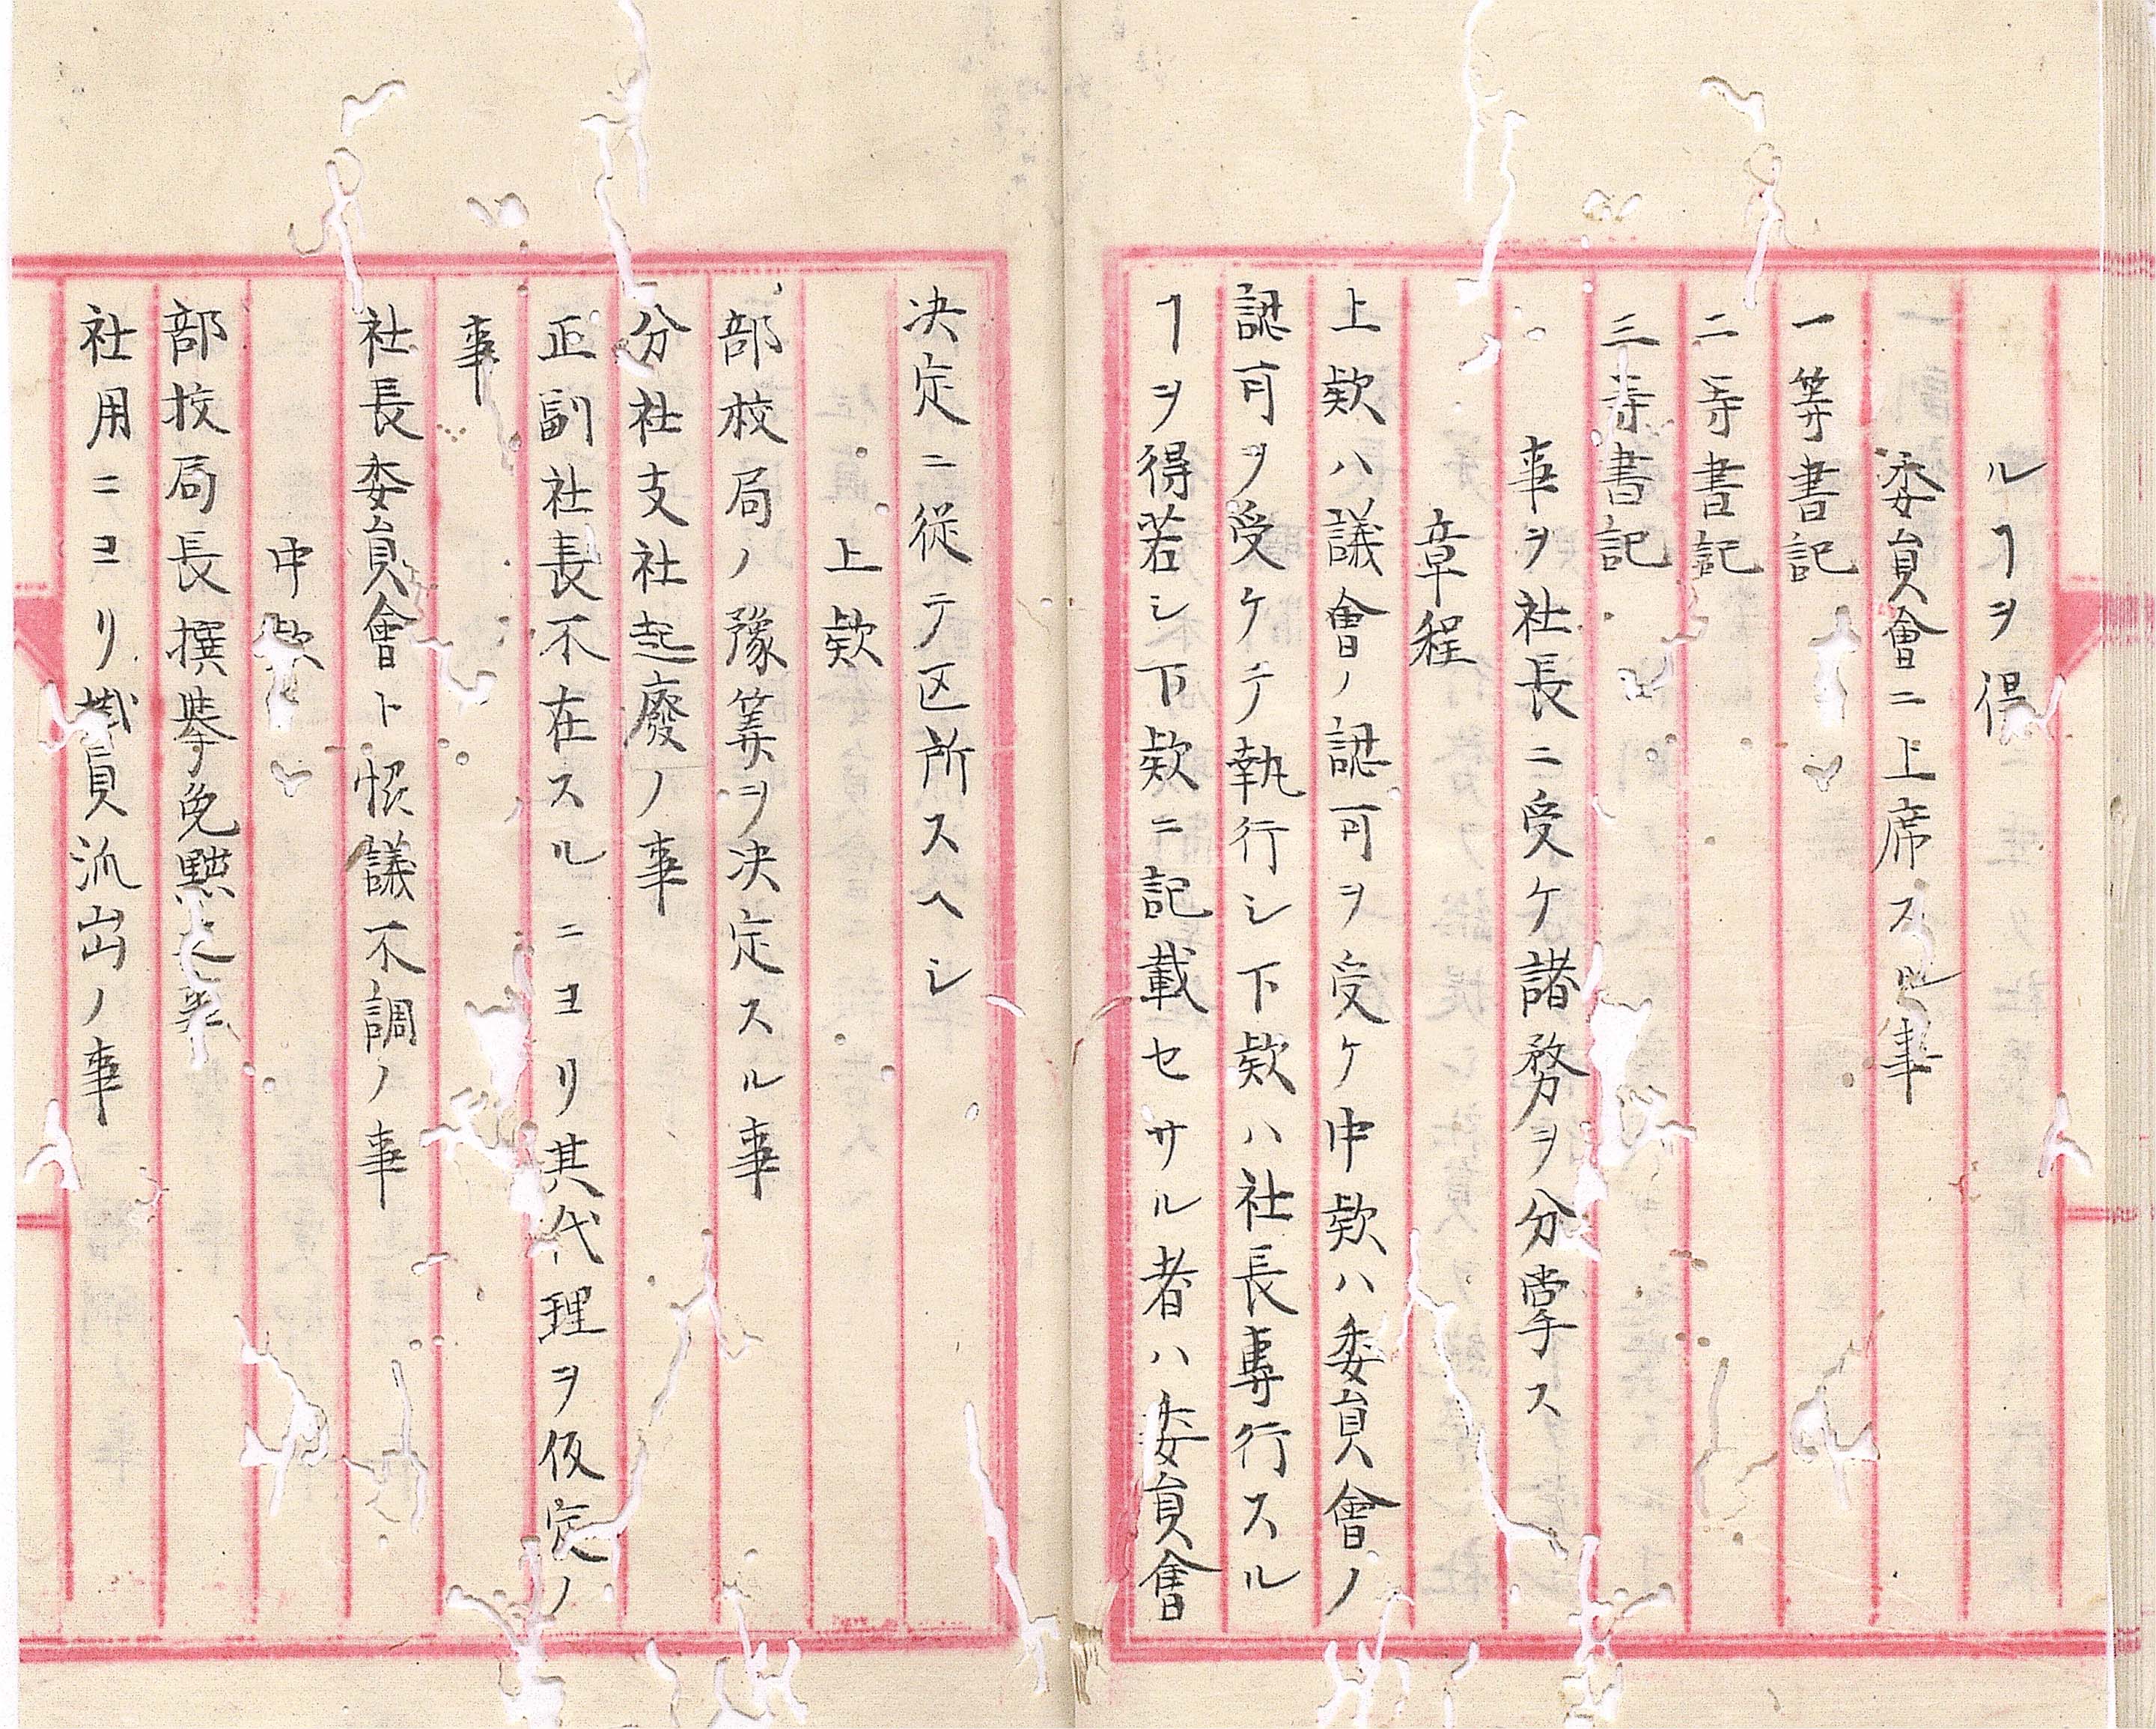 ルヿヲ得
委員會ニ上席スル事
一等書記
二等書記
三等書記
事ヲ社長ニ受ケ諸務ヲ分掌ス
章程
上欵ハ議會ノ認可ヲ受ケ中欵ハ委員會ノ
認可ヲ受ケテ執行シ下欵ハ社長專行スル
ヿヲ得若シ下欵ニ記載セサル者ハ委員會
决定ニ從テ区所スヘシ
上欵
部校局ノ豫筭ヲ决定スル事
分社支社起廢ノ事
正副社長不在スルニヨリ其代理ヲ仮定ノ
事
社長委員會ト恨議不調ノ事
中欵
部校局長撰挙免黜之事
社用ニヨリ掛員派出ノ事